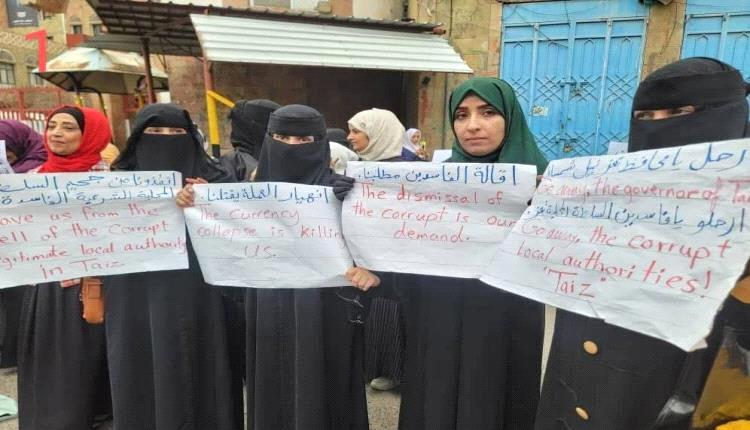 1
انقذونا من جحيم السلط
المحلية الشرعية الفاسدة
ave us from the
ell of the Corrupt
egitimate local authorit
in Taiz
انهيار العملة يقتلنا
The Currency
collapse is killin
US.
اقالة الفاسدين مطلبنا.
The dismissal of
the corrupt is our
demand.
ارحل يا محافظ تعز نبيل
Go away, the governor of Tai
ارحلو يا فاسدين السلطة المحلية
Go away, the corrupt
local authorities!
"Taiz"